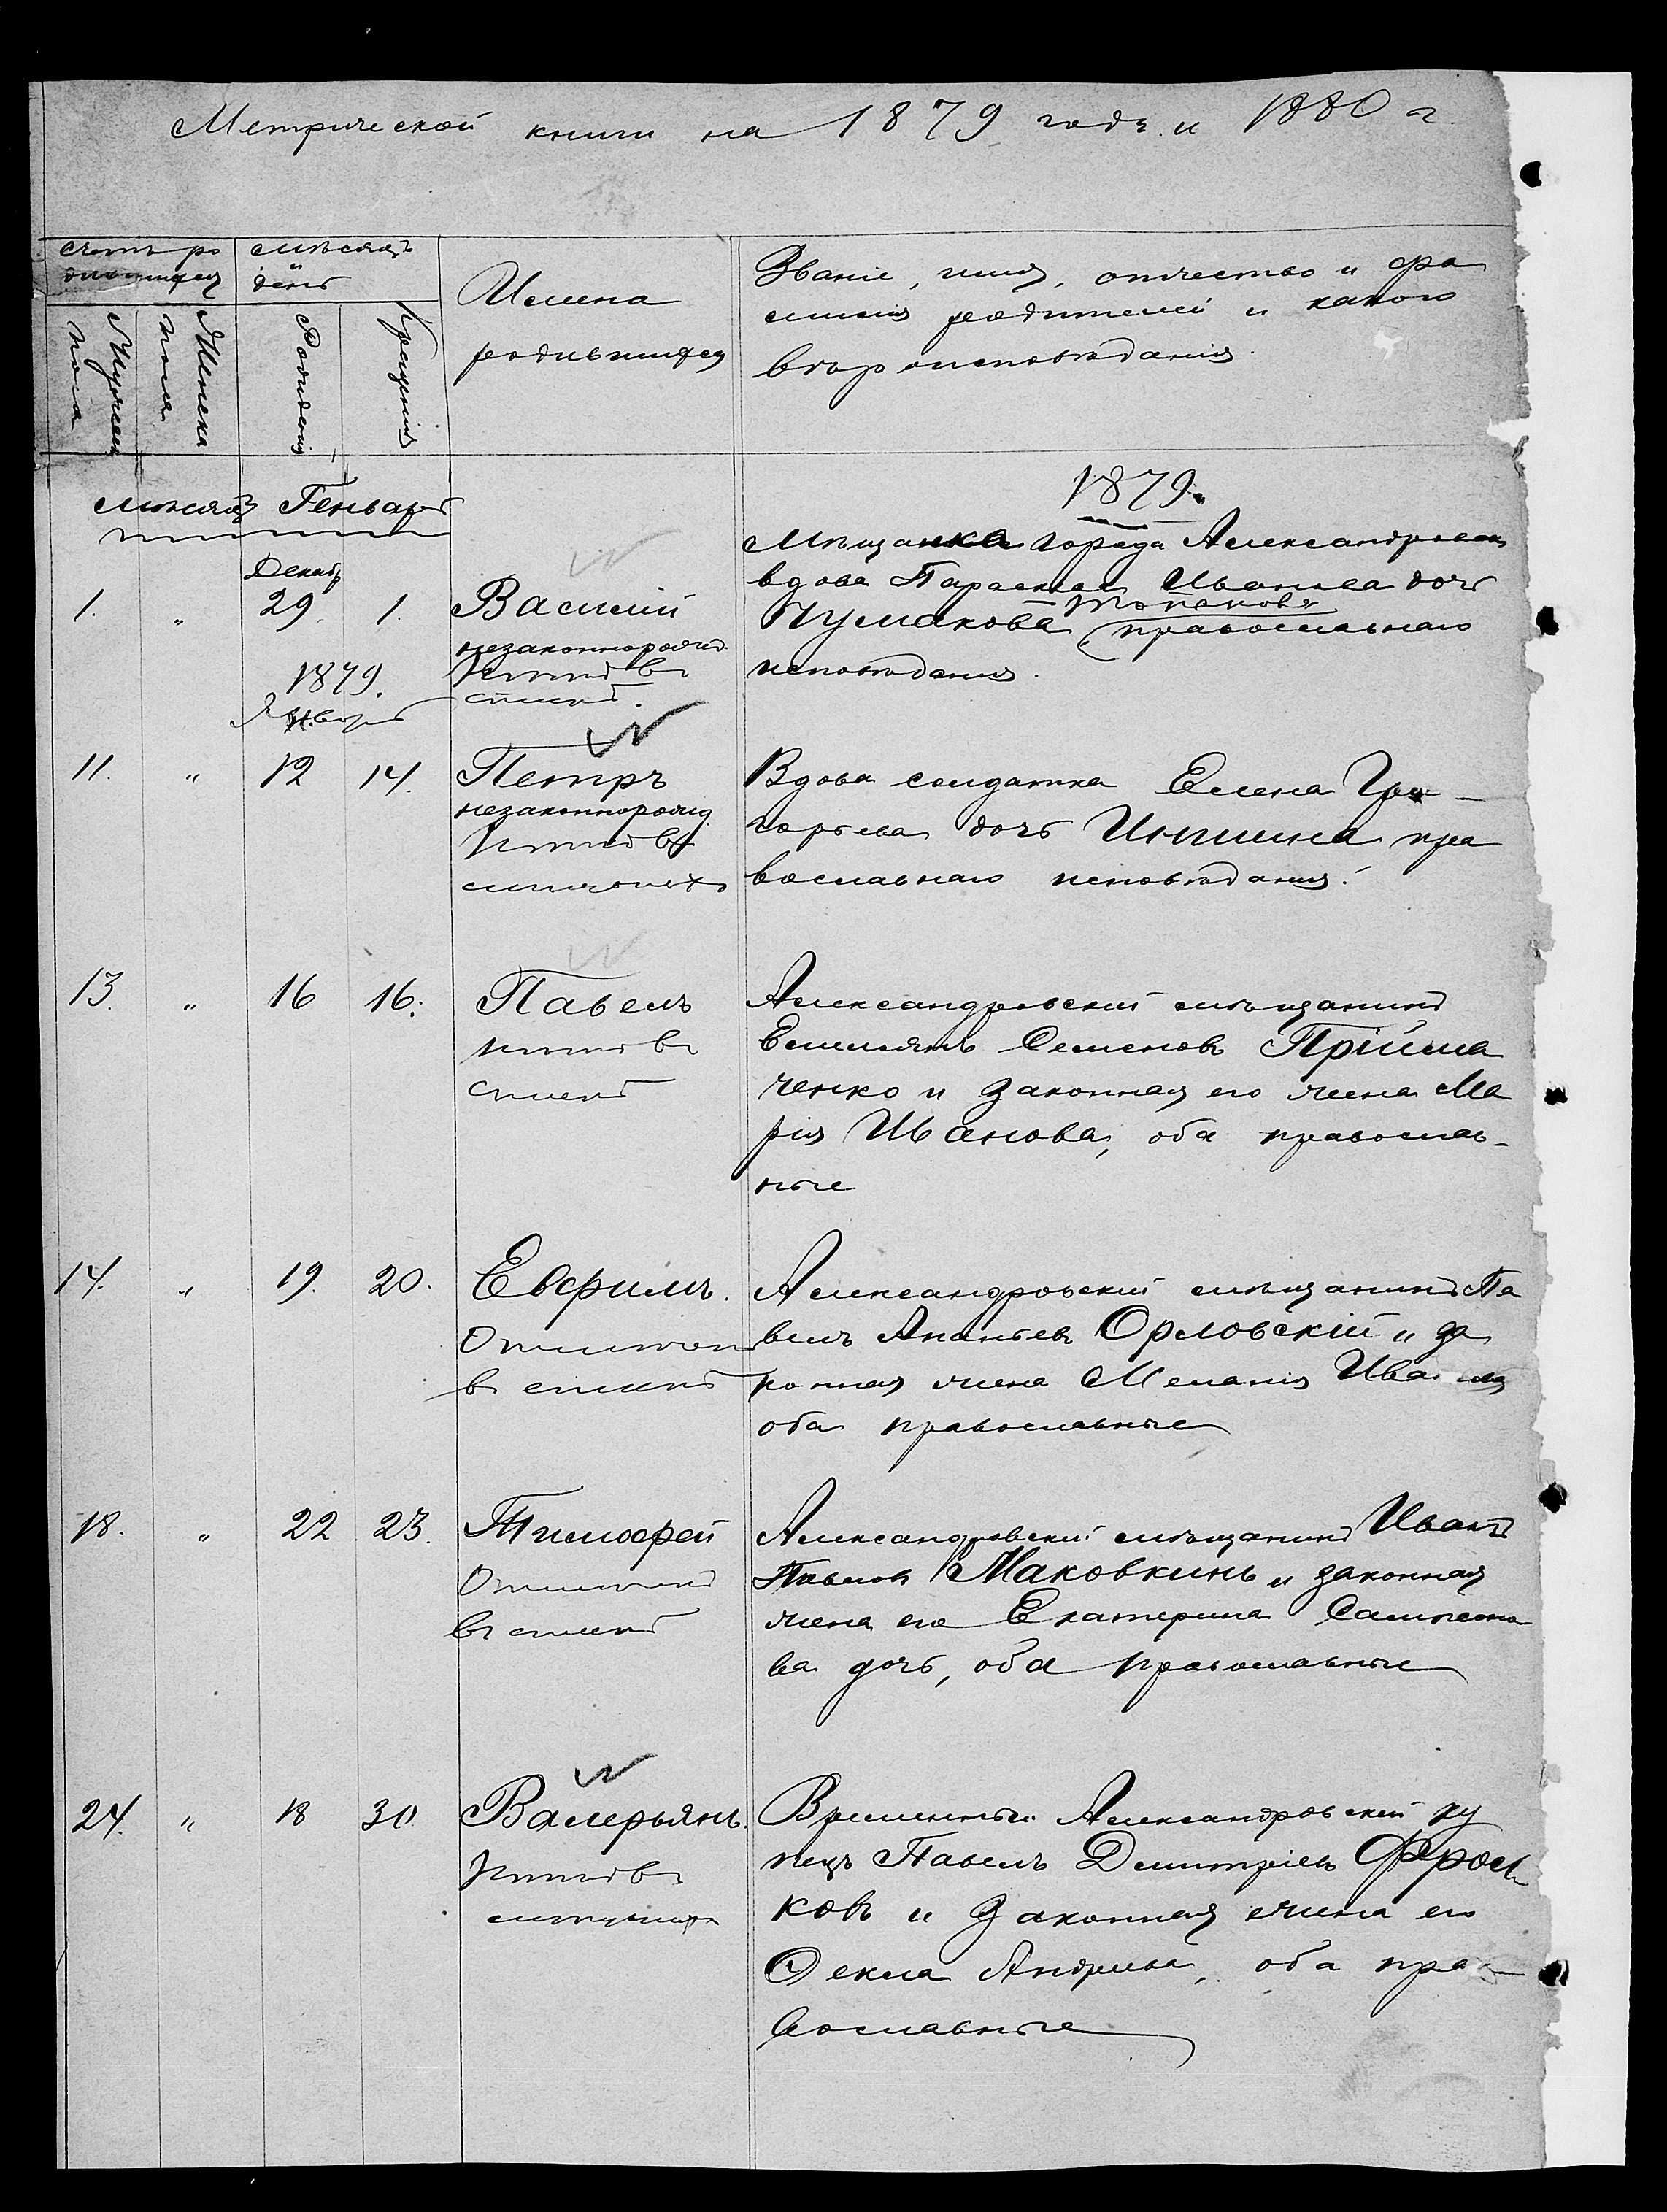 Метрической книги на 1879 годъ и 1880 г.
счетъ ро
дившихся
мѣсяцъ
день
Имена
родившихся
Званіе, имя, отчество и фа
милія родителей и какого
вѣроисповѣданія.
Мужеск
пола
Женска
пола
Рожденія
Крещенія
мѣсяцъ Генварь
1879.
Мѣщанка города Александровска
Декабр
вдова Параскева Иванова дочь
1. " 29 1. Василій
Чумакова
православнаго
незаконнорожд
исповѣданія.
1879.
Январь
11. " 12 14. Петръ
Вдова солдатка Елена Гри-
незаконнорожд
горьева дочь Иншина пра
вославнаго исповѣданія.
13. " 16 16. Павелъ
Александровскій мѣщанинъ
Емельянъ Семеновъ Прійма
ченко и законная его жена Ма
рія Иванова, оба православ-
ные
14. " 19. 20. Евфимъ.
Александровскій мѣщанинъ Па
велъ Ананьевъ Орловскій и за
въ списк
конная жена Меланія Ива
оба православные
18. " 22 23. Тимофей
Александровскій мѣщанинъ Иванъ
Павловъ Маковкинъ и законная
жена его Екатерина
ва дочь, оба православные
24. " 18 30 Валерьянъ.
Временный Александровскій ку
пецъ Павелъ Димитріевъ Фрол
ковъ и законная жена его
Ѳекла Андреева, оба пра-
вославные